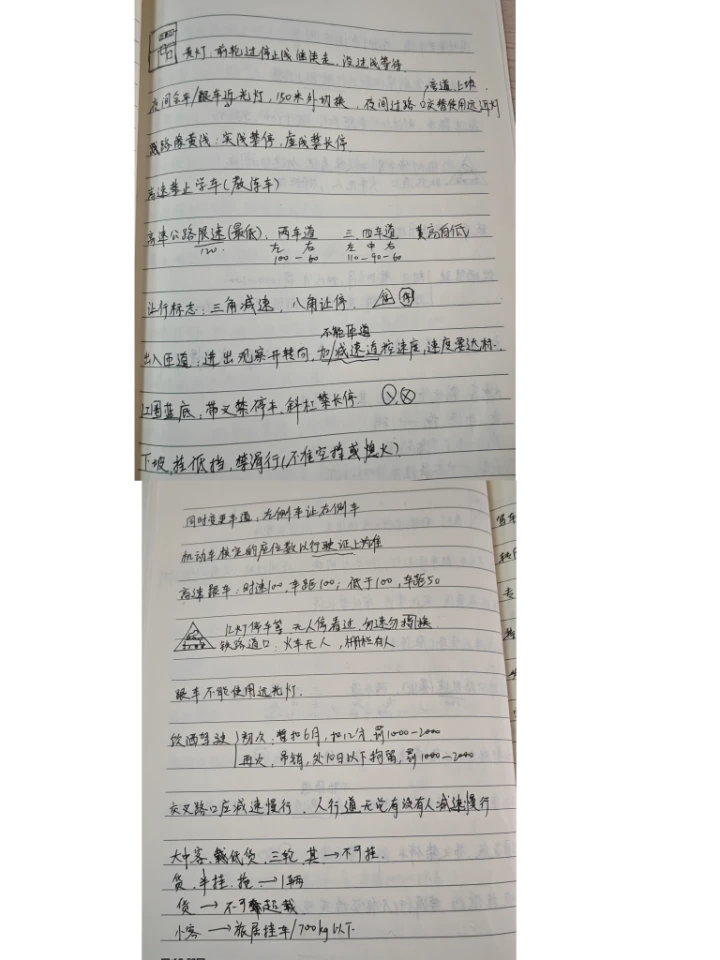 黄灯:前轮过停止线继续走,没过线等待
弯道,上坡
夜间会车/跟车近光灯,150米外切换,夜间过路口交替使用远近灯
路缘黄线:实线禁停,虚线禁长停
高速禁止学车(教练车)
高速公路限速(最低):两车道 三、四车道 其高自低
120 左 右 左 中 右
100-60 110-90-60
让行标志:三角减速,八角让停
不能匝道
出入匝道:进出观察开转向,加/减速道控速度,速度要达标.
红圈蓝底,带叉禁停车,斜杠禁长停
下坡,挂低挡,禁滑行(不准空挡或熄火)
同时变更车道,左侧车让右侧车
机动车核定的座位数以行驶证上为准
高速跟车:时速100,车距100;低于100,车距50
红灯停车等,无人停看过,勿速勿换
铁路道口:火车无人,栅栏有人
跟车不能使用远光灯.
饮酒驾驶 初次:暂扣6月,扣12分,罚1000-2000
再次,吊销,处10日以下拘留,罚1000-2000
交叉路口应减速慢行,人行道无论有没有人减速慢行
大中客,载低货,三轮,其→不可挂.
货,半挂,拖→1辆
货→不可超载
小客→旅居挂车/700kg以下